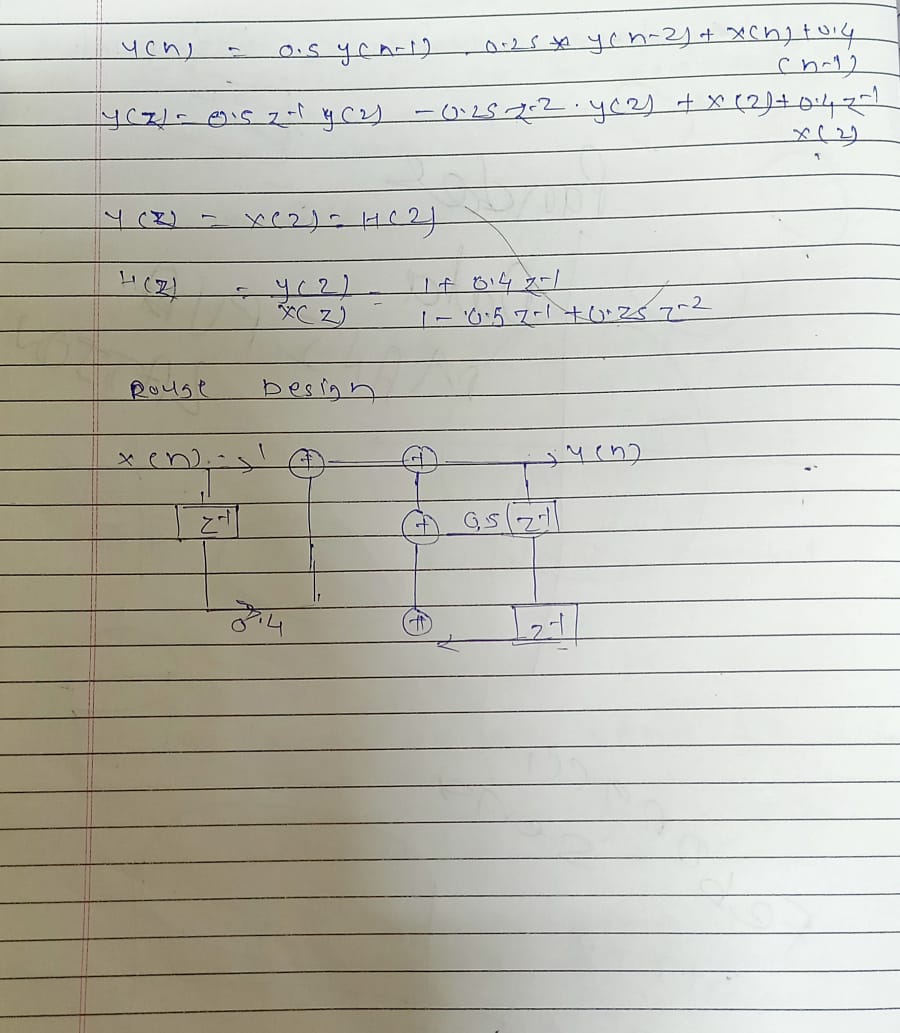 y(n) = 0.5 y(n-1) . 0.25 * y(n-2) + x(n) + 0.4
(n-1)
y(z) = 0.5 z-1 y(2) - 0.25 z-2 . y(2) + x(2) + 0.4 z-1
x(2)
y(z) = x(2) = H(2)
H(z) = y(2) = 1 + 0.4 z-1
x(z) 1 - 0.5 z-1 + 0.25 z-2
Rouge Design
x(n) + + y(n)
z-1 + 0.5 z-1
0.4 + z-1